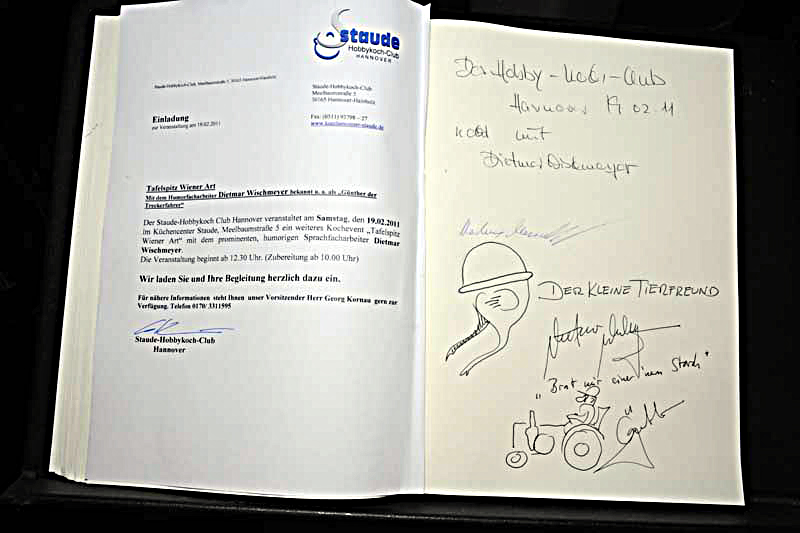 staude
Hobbykoch-Club
HANNOVER
Staude-Hobbykoch-Club, Meelbaumstraße 5, 30165 Hannover-Hainholz
Staude-Hobbykoch-Club
Meelbaumstraße 5
30165 Hannover-Hainholz
Fax: (0511) 93798 – 27
Einladung
zur Veranstaltung am 19.02.2011
Tafelspitz Wiener Art
Mit dem Humorfacharbeiter Dietmar Wischmeyer bekannt u. a. als „Günther der
Treckerfahrer"
Der Staude-Hobbykoch Club Hannover veranstaltet am Samstag, den 19.02.2011
im Küchencenter Staude, Meelbaumstraße 5 ein weiteres Kochevent „Tafelspitz
Wiener Art" mit dem prominenten, humorigen Sprachfacharbeiter Dietmar
Wischmeyer.
Die Veranstaltung beginnt ab 12.30 Uhr. (Zubereitung ab 10.00 Uhr)
Wir laden Sie und Ihre Begleitung herzlich dazu ein.
Für nähere Informationen steht Ihnen unser Vorsitzender Herr Georg Kornau gern zur
Verfügung. Telefon 0170/ 3311595
Staude-Hobbykoch-Club
Hannover
Der Hobby-Koch-Club
Hannover 19.02.11
kocht mit
Dietmar Wischmeyer
DER KLEINE TIERFREUND
„Brat mir einer 'nen Storch"